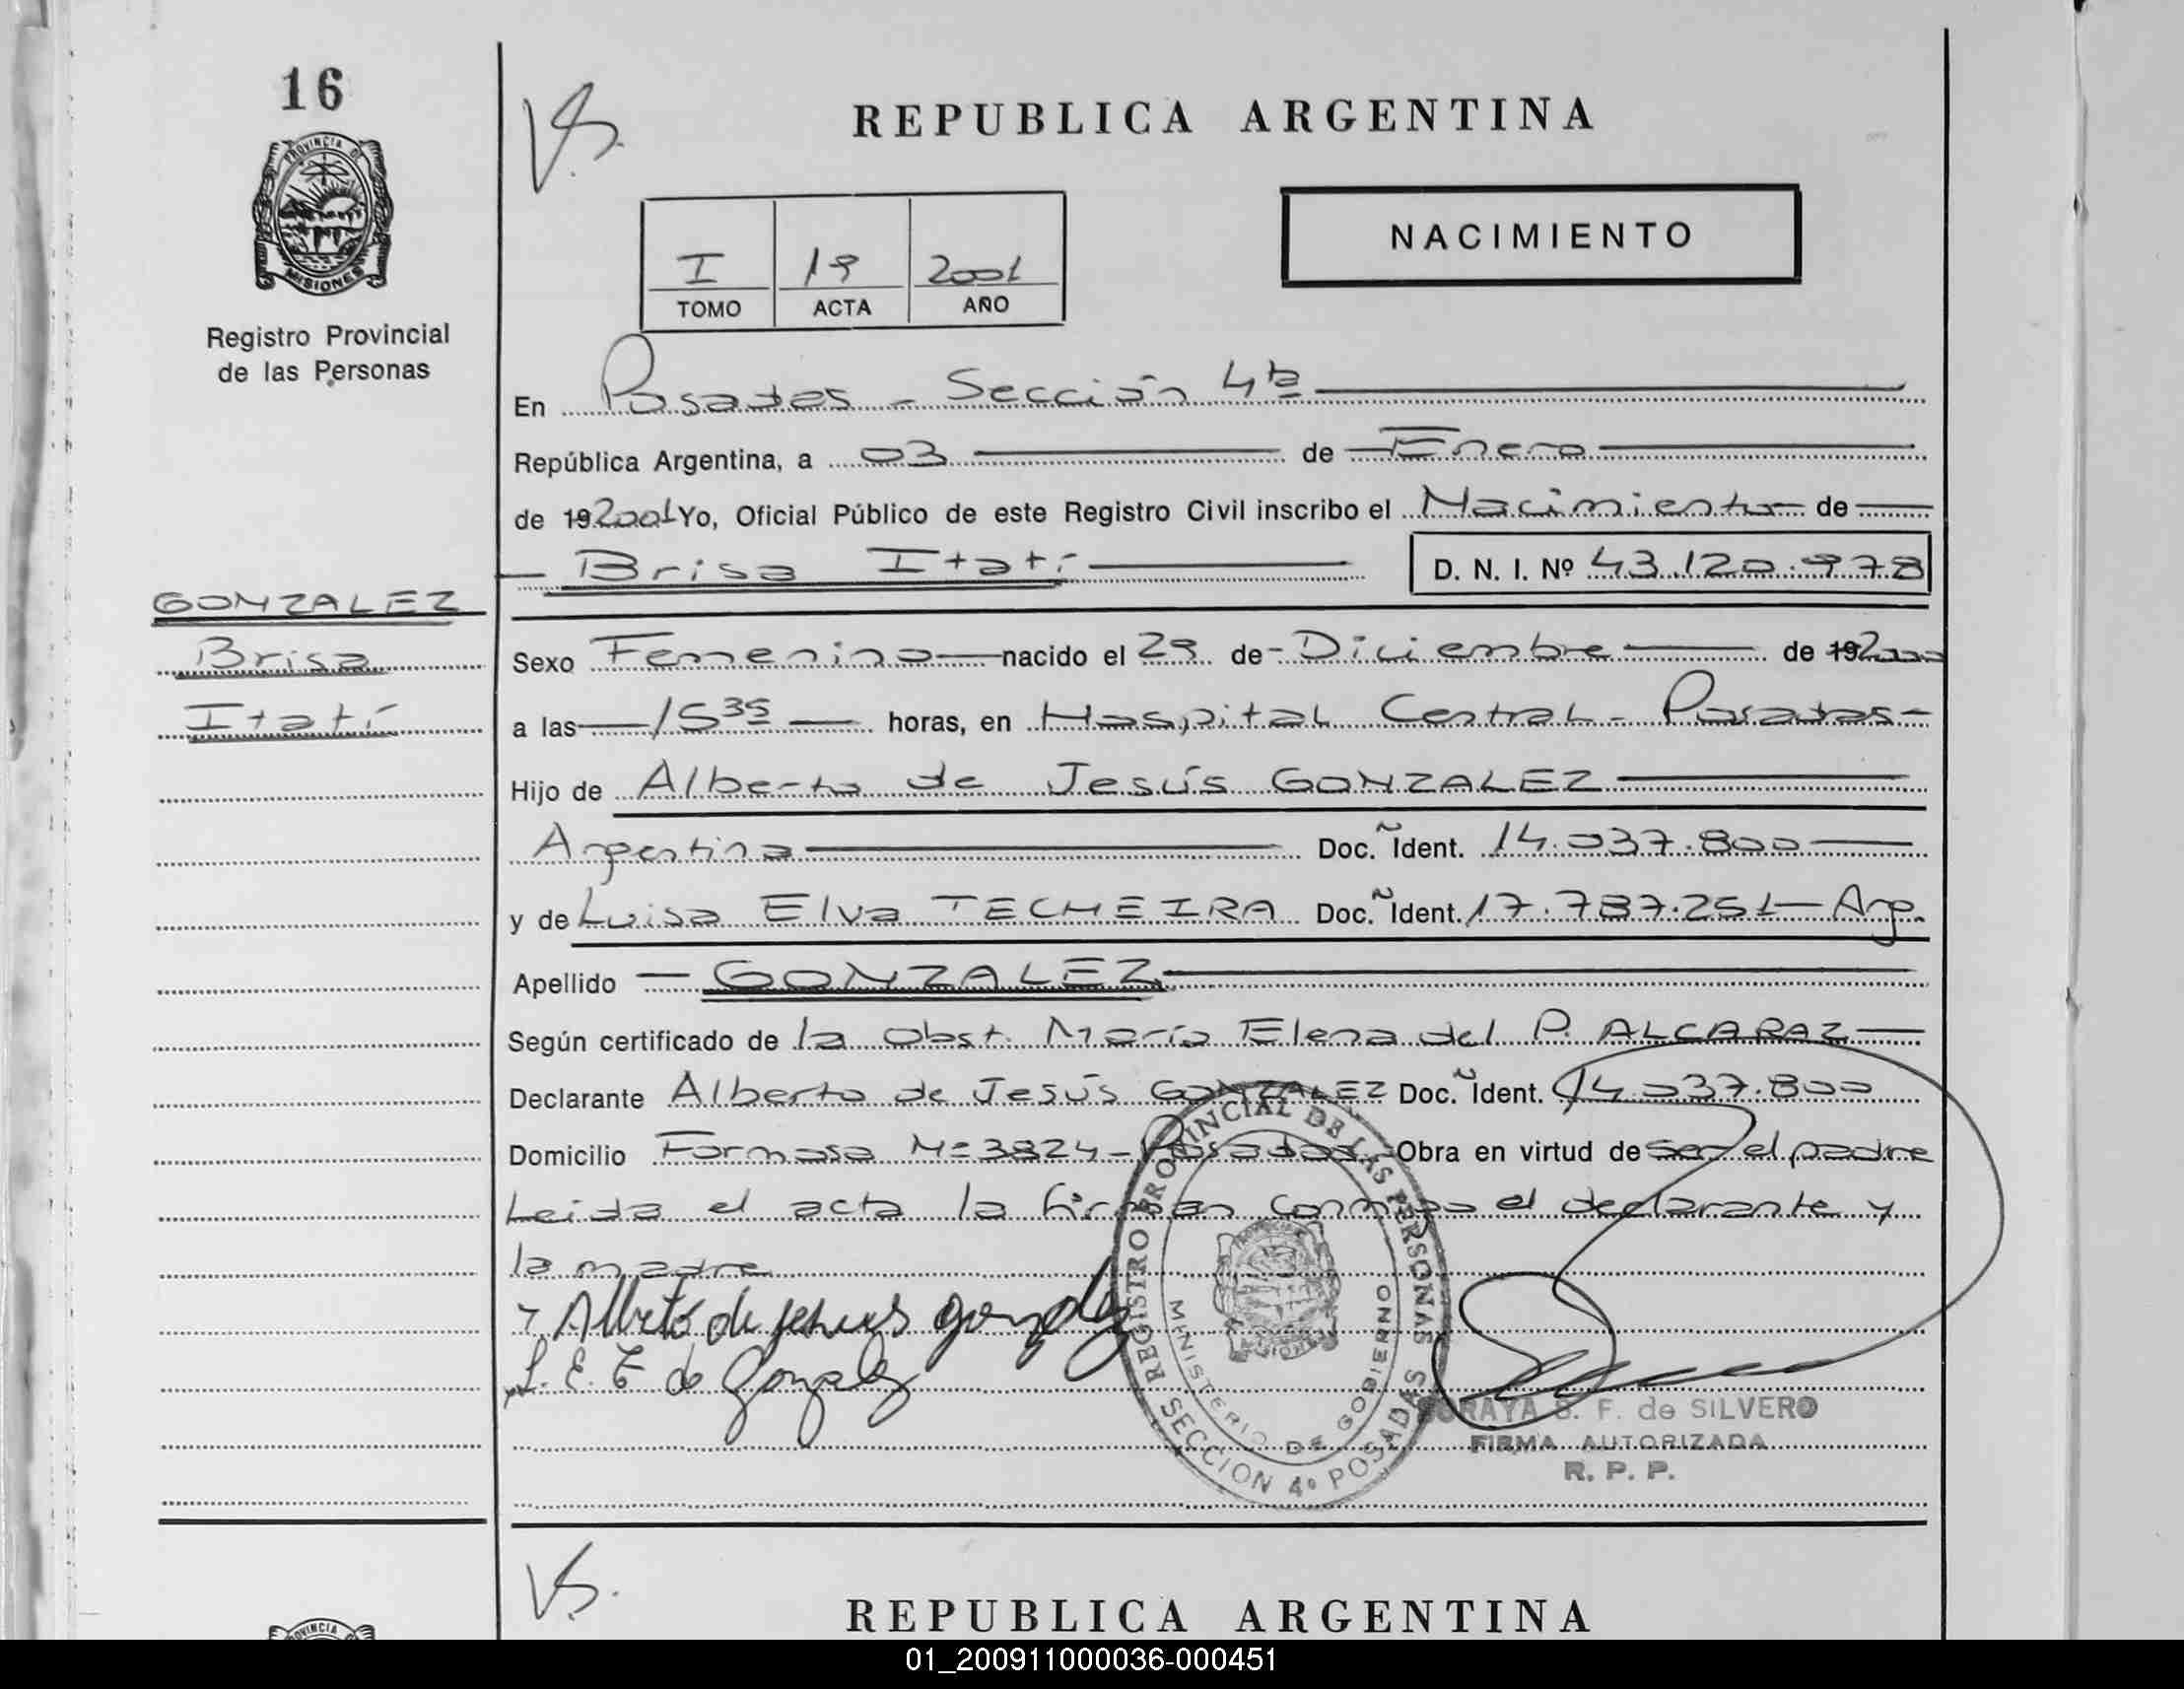 16
PROVINCIA DE
MISIONES
Registro Provincial
de las Personas
Vs.
REPUBLICA ARGENTINA
NACIMIENTO
I 19 2001
TOMO ACTA AÑO
En Posadas - Sección 4ta
República Argentina, a 03 de Enero
de 19 2001 Yo, Oficial Público de este Registro Civil inscribo el Nacimiento de
Brisa Itatí D. N. I. Nº 43.120.978
GONZALEZ
Brisa
Itatí
Sexo Femenino nacido el 29 de Diciembre de 19 2000
a las 15 35 horas, en Hospital Central - Posadas -
Hijo de Alberto de Jesús GONZALEZ
Argentina Doc. Ident. 14.037.800
y de Luisa Elva TECHEIRA Doc. Ident. 17.787.251 - Arg.
Apellido GONZALEZ
Según certificado de la Obst. María Elena del P. ALCARAZ
Declarante Alberto de Jesús GONZALEZ Doc. Ident. 14.037.800
Domicilio Formosa Nº 3824 - Posadas - Obra en virtud de ser el padre
Leida el acta la firman conmigo el declarante y
la madre
Alberto de Jesus Gonzalez
L. E. T de Gonzalez
REGISTRO PROVINCIAL DE LAS PERSONAS
MINISTERIO DE GOBIERNO
SECCION 4º POSADAS
SORAYA S. F. de SILVERO
FIRMA AUTORIZADA
R. P. P.
Vs.
REPUBLICA ARGENTINA
PROVINCIA
01_200911000036-000451